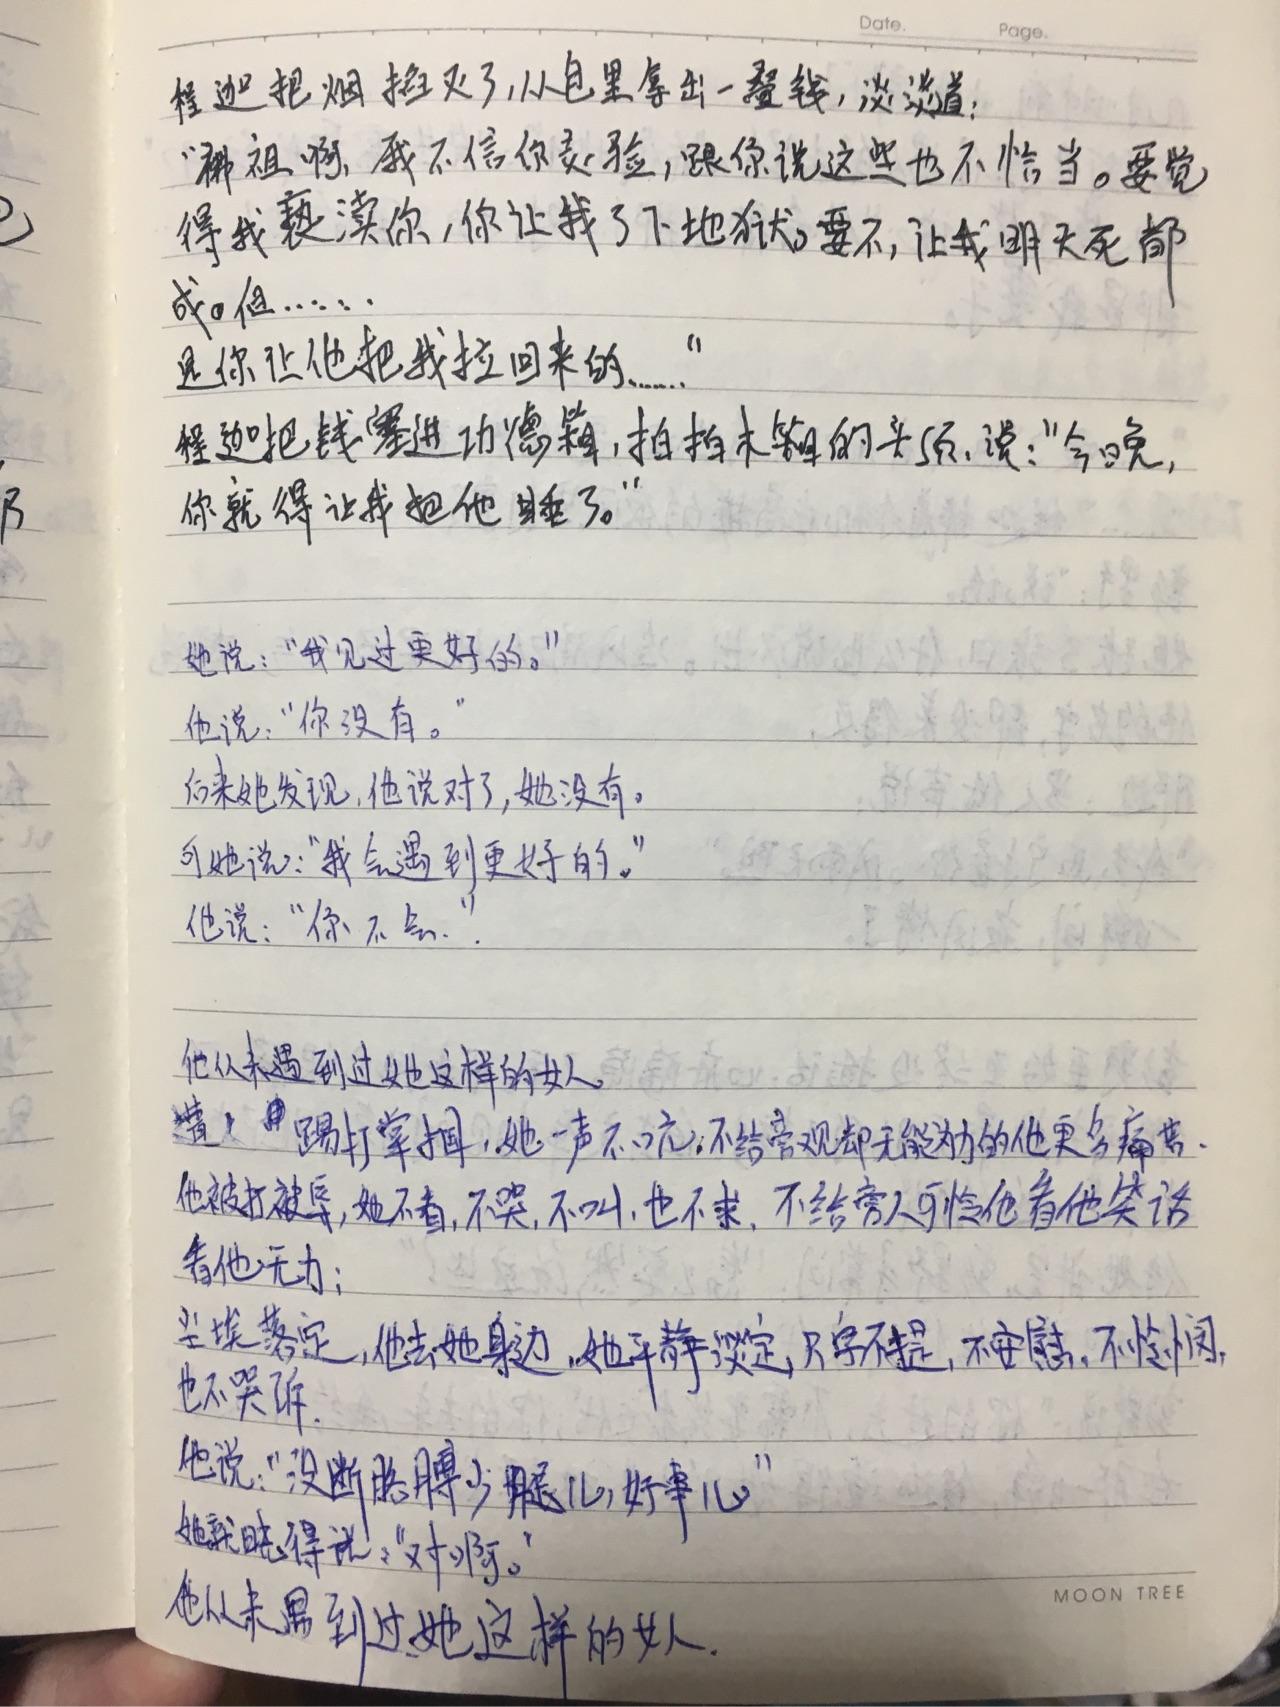 Date. Page.
程迦把烟掐灭了,从包里拿出一叠钱,淡淡道:
"佛祖啊,我不信你灵验,跟你说这些也不恰当。要觉
得我亵渎你,你让我下地狱。要不,让我明天死都
成。但……
是你让他把我拉回来的……"
程迦把钱塞进功德箱,拍拍木箱的头顶,说:"今晚,
你就得让我把他睡了。"
她说:"我见过更好的。"
他说:"你没有。"
后来她发现,他说对了,她没有。
可她说:"我会遇到更好的。"
他说:"你不会."
他从未遇到过她这样的女人。
踢打掌掴,她一声不吭,不给旁观却无能为力的他更多痛苦.
他被打被辱,她不看,不哭,不叫,也不求,不给旁人可怜他看他笑话
看他无力;
尘埃落定,他去她身边,她平静淡定,只字不提,不安慰,不怜悯,
也不哭诉.
他说:"没断胳膊少腿儿,好事儿。"
她就晓得说:"对啊。"
他从未遇到过她这样的女人.
MOON TREE